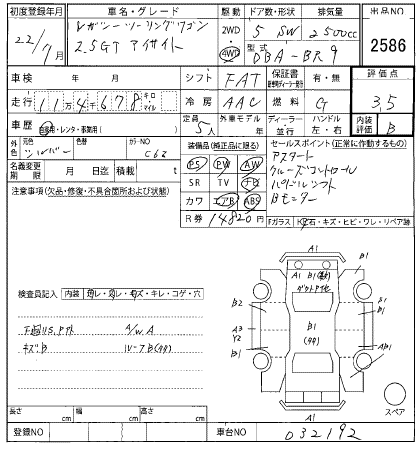 初度登録年月 車名・グレード 駆動 ドア数・形状 排気量 出品NO
22/7月 レガシーツーリングワゴン 2WD 5 SW 2500cc 2586
2.5GTアイサイト 4WD 型式 DBA-BR9
車検 年 月 シフト FAT 保証書 有・無 評価点
走行 11万4千678キロ マイル 冷房 AAC 燃料 G 3.5
車歴 自家用・レンタ・事業用( ) 定員 5人 外車モデル 年 ディーラー 並行 ハンドル 左・右 内装評価 B
外色 元色 シルバー 色替 カラーNO C6Z 装備品(純正品に限る) セールスポイント(正常に作動するもの)
名義変更期限 月 日迄 積載 t PS PW AW アスタート
注意事項(欠品・修復・不具合箇所および状態) SR TV ナビ クルーズコントロール
カワ エアB ABS パドルシフト
R券 14820円 Bモニター
Fガラス 飛石・キズ・ヒビ・ワレ・リペア跡
A1
A1 B1 B1
検査員記入 内装 スレ・コゲ・穴
B2 B1 B1
下廻りU.S.P外 A/W A A3 B1
キズB ルーフB(タタ) Y2 (タタ)
B1 AB1
A1
スペア
長さ cm 幅 cm 高さ cm
登録NO 車台NO 032192